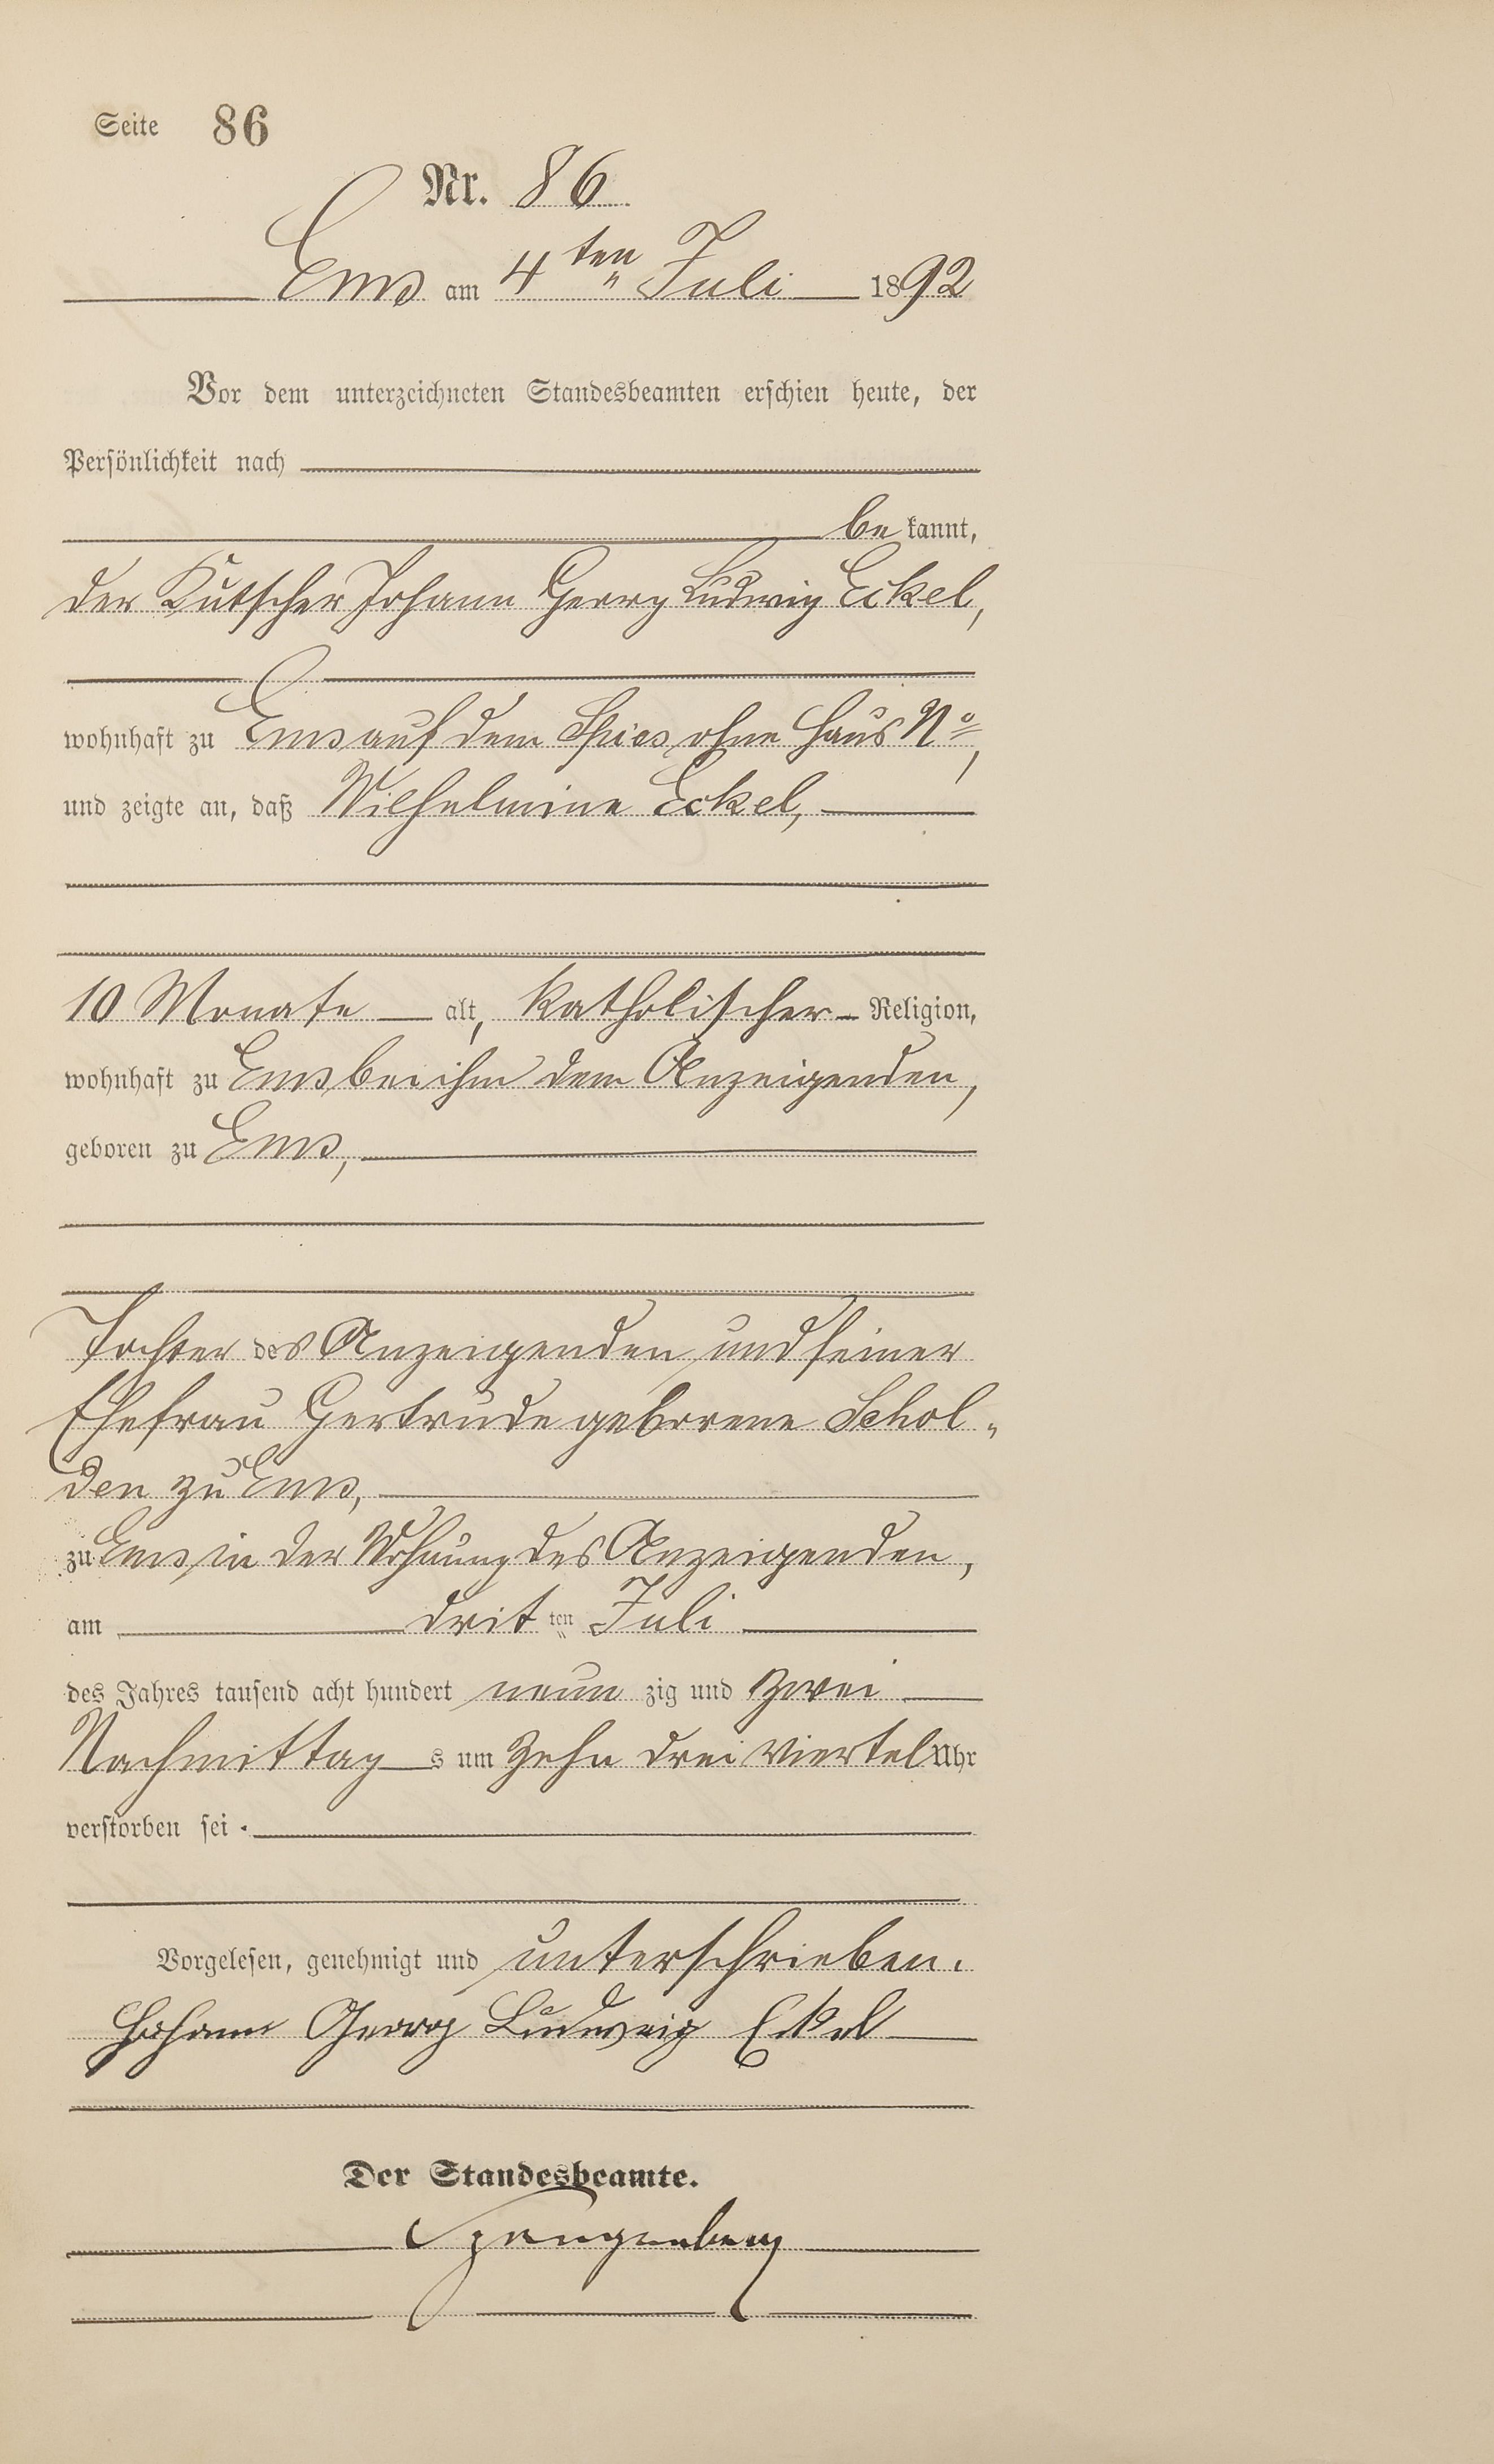 Seite 86
Nr. 86
Ems am 4ten Juli 1892
Vor dem unterzeichneten Standesbeamten erschien heute, der
Persönlichkeit nach
bekannt,
der Kutscher Johann Georg Ludwig Eckel,
wohnhaft zu Ems auf dem Spies, ohne Haus No,
und zeigte an, daß Wilhelmine Eckel,
10 Monate alt, katholischer Religion,
wohnhaft zu Ems bei ihm dem Anzeigenden,
geboren zu Ems,
Tochter des Anzeigenden und seiner
Ehefrau Gertrude geborene Schol-
den zu Ems,
zu Ems in der Wohnung des Anzeigenden,
am dritten Juli
des Jahres tausend acht hundert neunzig und zwei
Nachmittags um zehn drei viertel Uhr
verstorben sei.
Vorgelesen, genehmigt und unterschrieben.
Johann Georg Ludweig Eckel
Der Standesbeamte.
Spangenberg